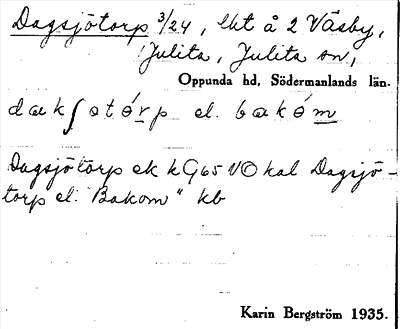 Dagsjötorp 3/24, lht å 2 Väsby,
Julita, Julita sn,
Oppunda hd, Södermanlands län.
dækʃøtórp el. bækóm
Dagsjötorp ek kG65 VO kal Dagsjö-
torp el. "Bakom" kb
Karin Bergström 1935.